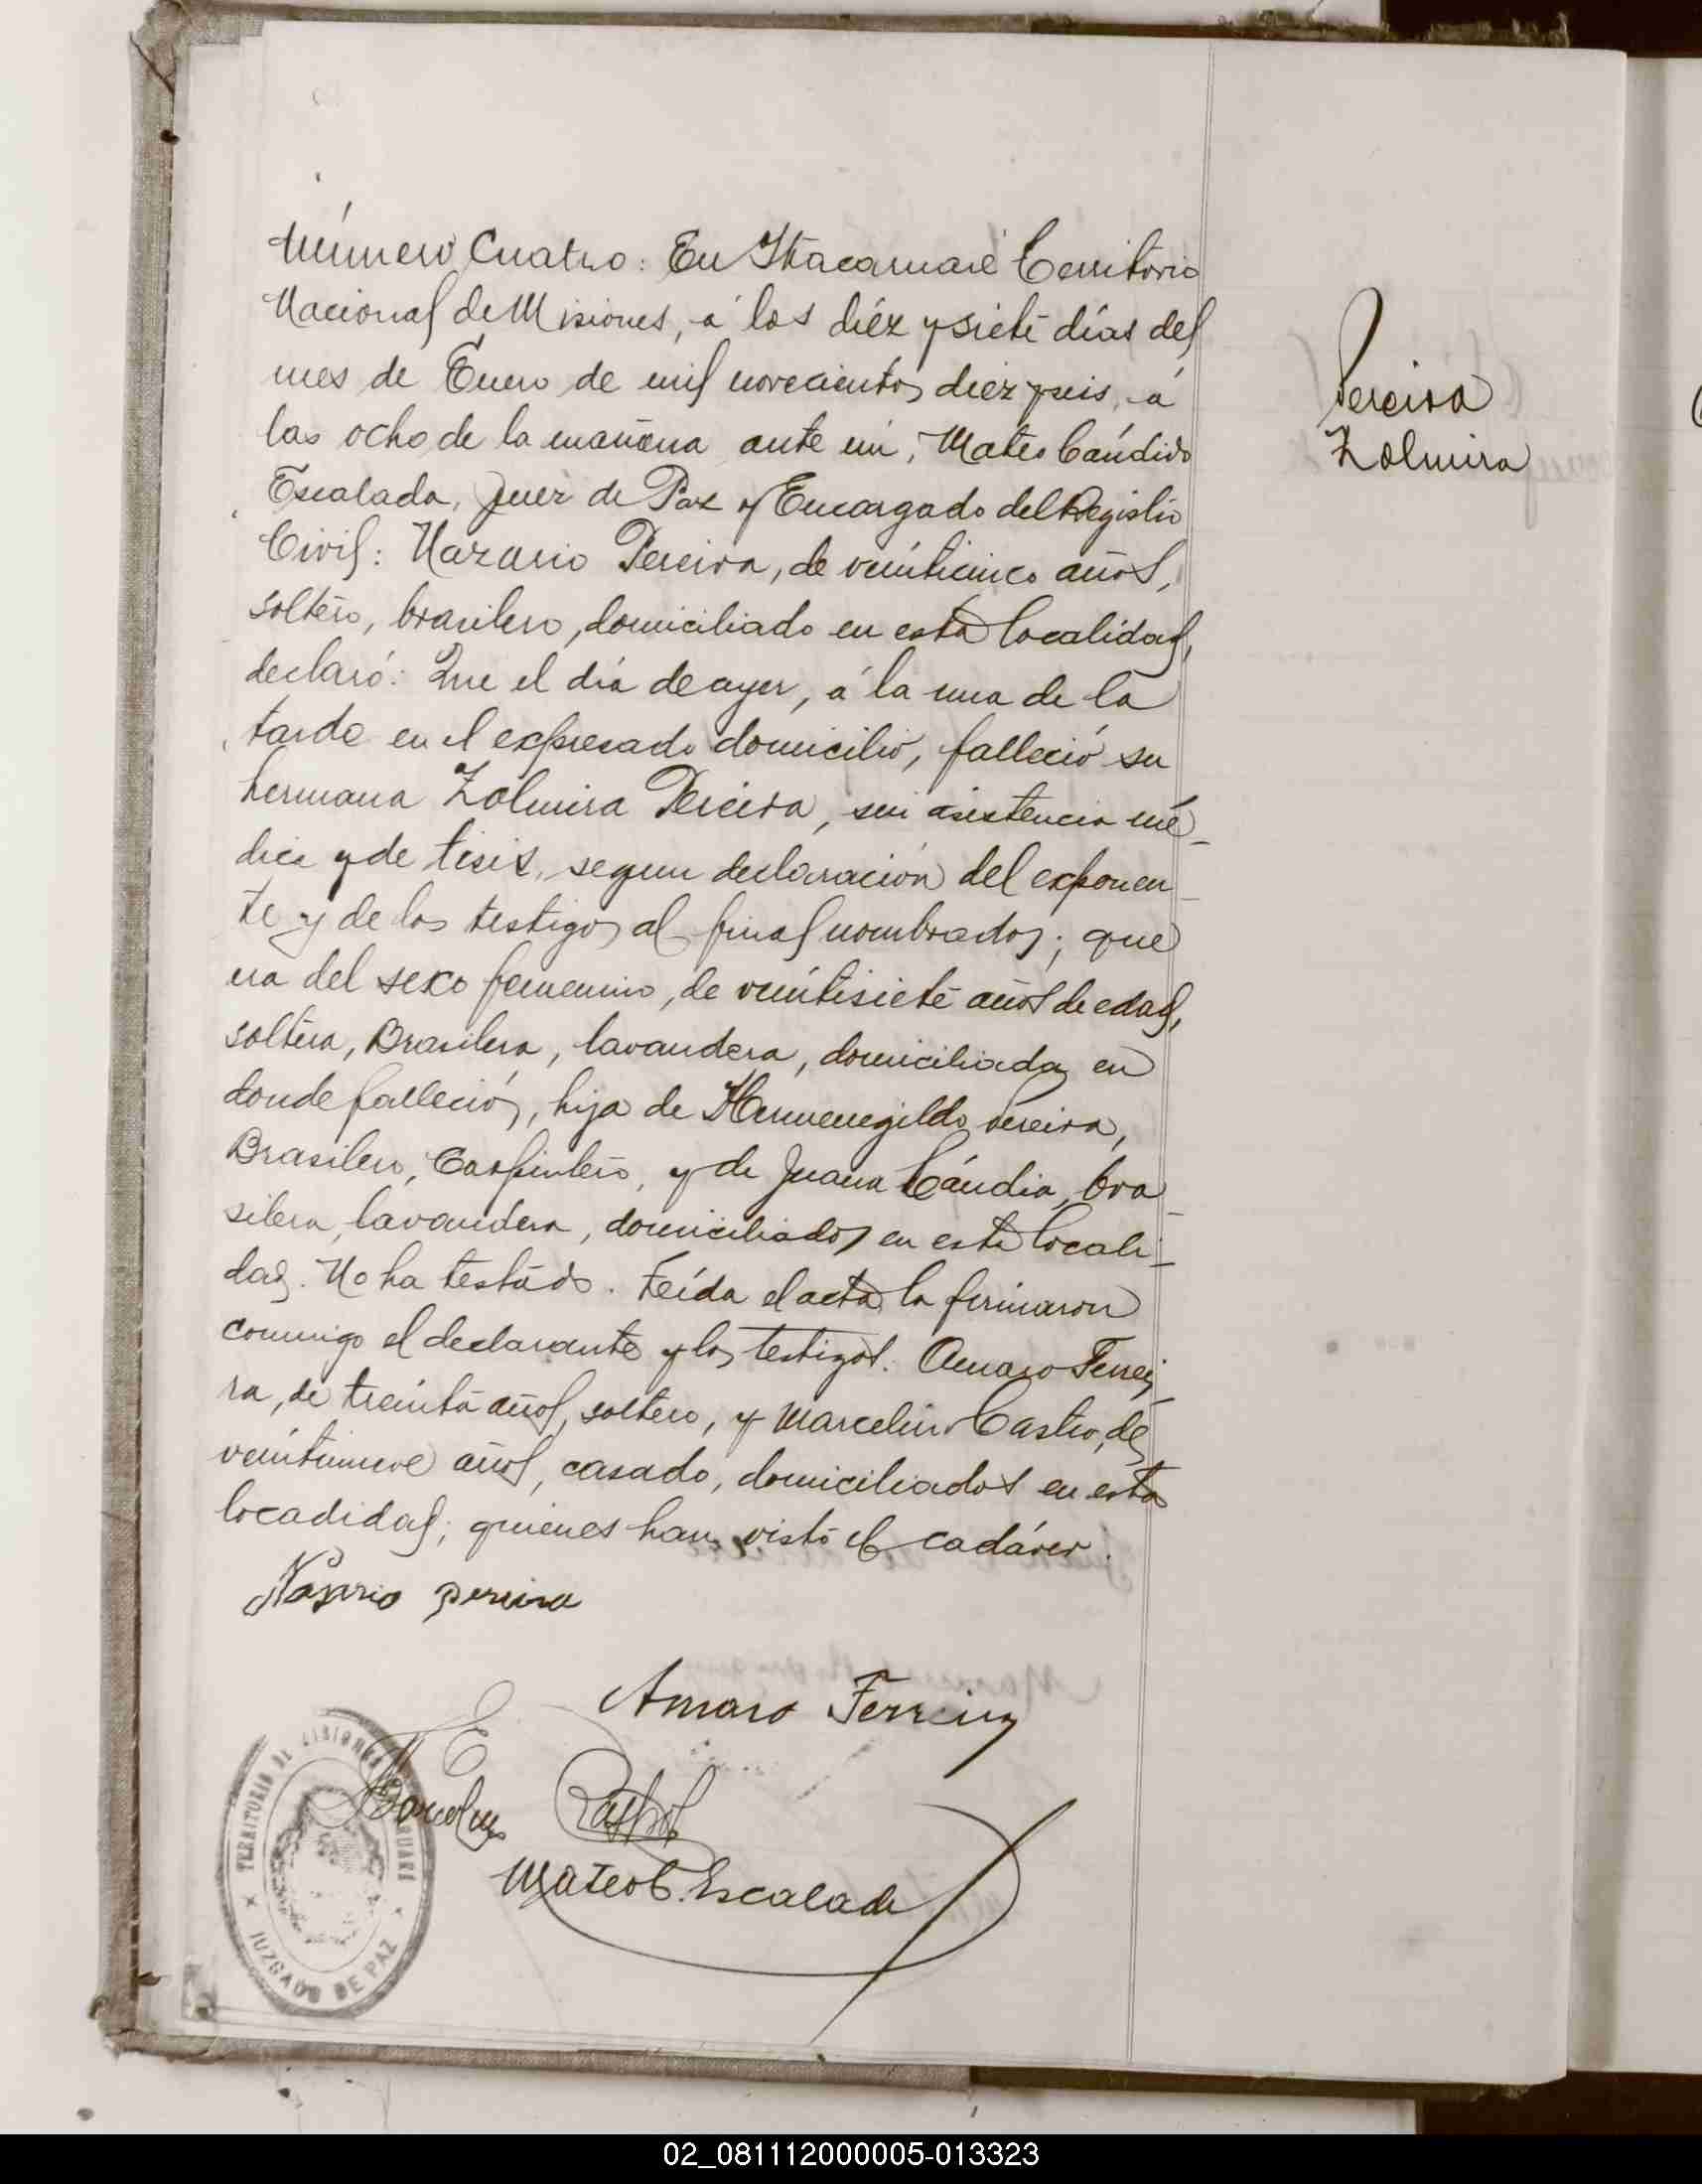 Número Cuatro: En Itacaruaré Territorio
Nacional de Misiones, á los diéz y siete días del
mes de Enero de mil novecientos diez y seis, á
las ocho de la mañana ante mi, Mateo Cándido
Escalada, Juez de Paz y Encargado del Registro
Civil: Nazario Pereira, de veinticinco años,
soltero, brasilero, domiciliado en esta localidad,
declaró: Que el día de ayer, á la una de la
tarde en el expresado domicilio, falleció su
hermana Zolmira Pereira, sin asistencia mé-
dica y de tisis, segun declaración del exponen-
te y de los testigos al final nombrados; que
era del sexo femenino, de veintisiete años de edad,
soltera, Brasilera, lavandera, domiciliada en
donde falleció, hija de Hermenegildo Pereira,
Brasilero, Carpintero, y de Juana Cándia, bra-
silera, lavandera, domiciliados en esta locali-
dad. No ha testado. Leída el acta la firmaron
conmigo el declarante y los testigos. Amaro Ferrei-
ra, de treinta años, soltero, y Marcelino Castro, de
veintinueve años, casado, domiciliados en esta
locadidad; quienes han visto el cadáver.
Nasario pereira
Amaro Ferreira
Marcelino Castro
Mateo C. Escalada
TERRITORIO DE MISIONES
JUZGADO DE PAZ
Pereira
Zolmira
02_081112000005-013323